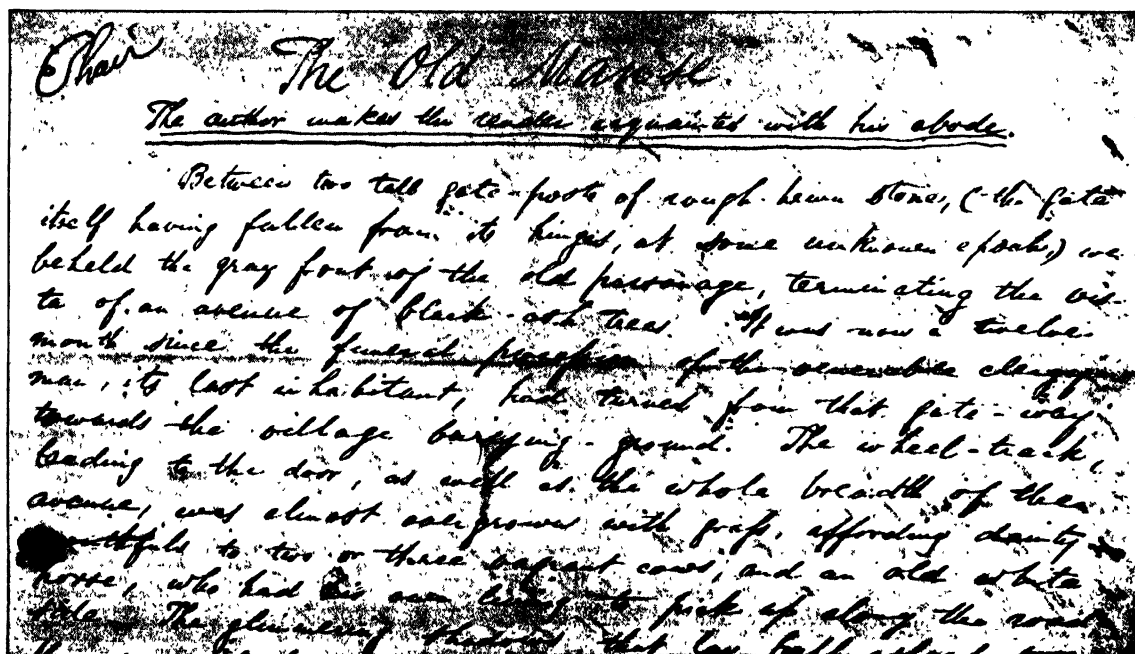 Phair
The Old Manse.
The author makes the reader acquainted with his abode.
Between two tall gate-posts of rough-hewn stone, (the gate
itself having fallen from its hinges, at some unknown epoch,) we
beheld the gray front of the old parsonage, terminating the vis-
ta of an avenue of black-ash trees. It was now a twelve-
month since the funeral procession of the venerable clergy-
man, its last inhabitant, had turned from that gate-way
towards the village burying-ground. The wheel-track,
leading to the door, as well as the whole breadth of the
avenue, was almost overgrown with grass, affording dainty
mouthfuls to two or three vagrant cows, and an old white
horse, who had his own living to pick up along the road-
side. The glimmering shadows, that lay half asleep